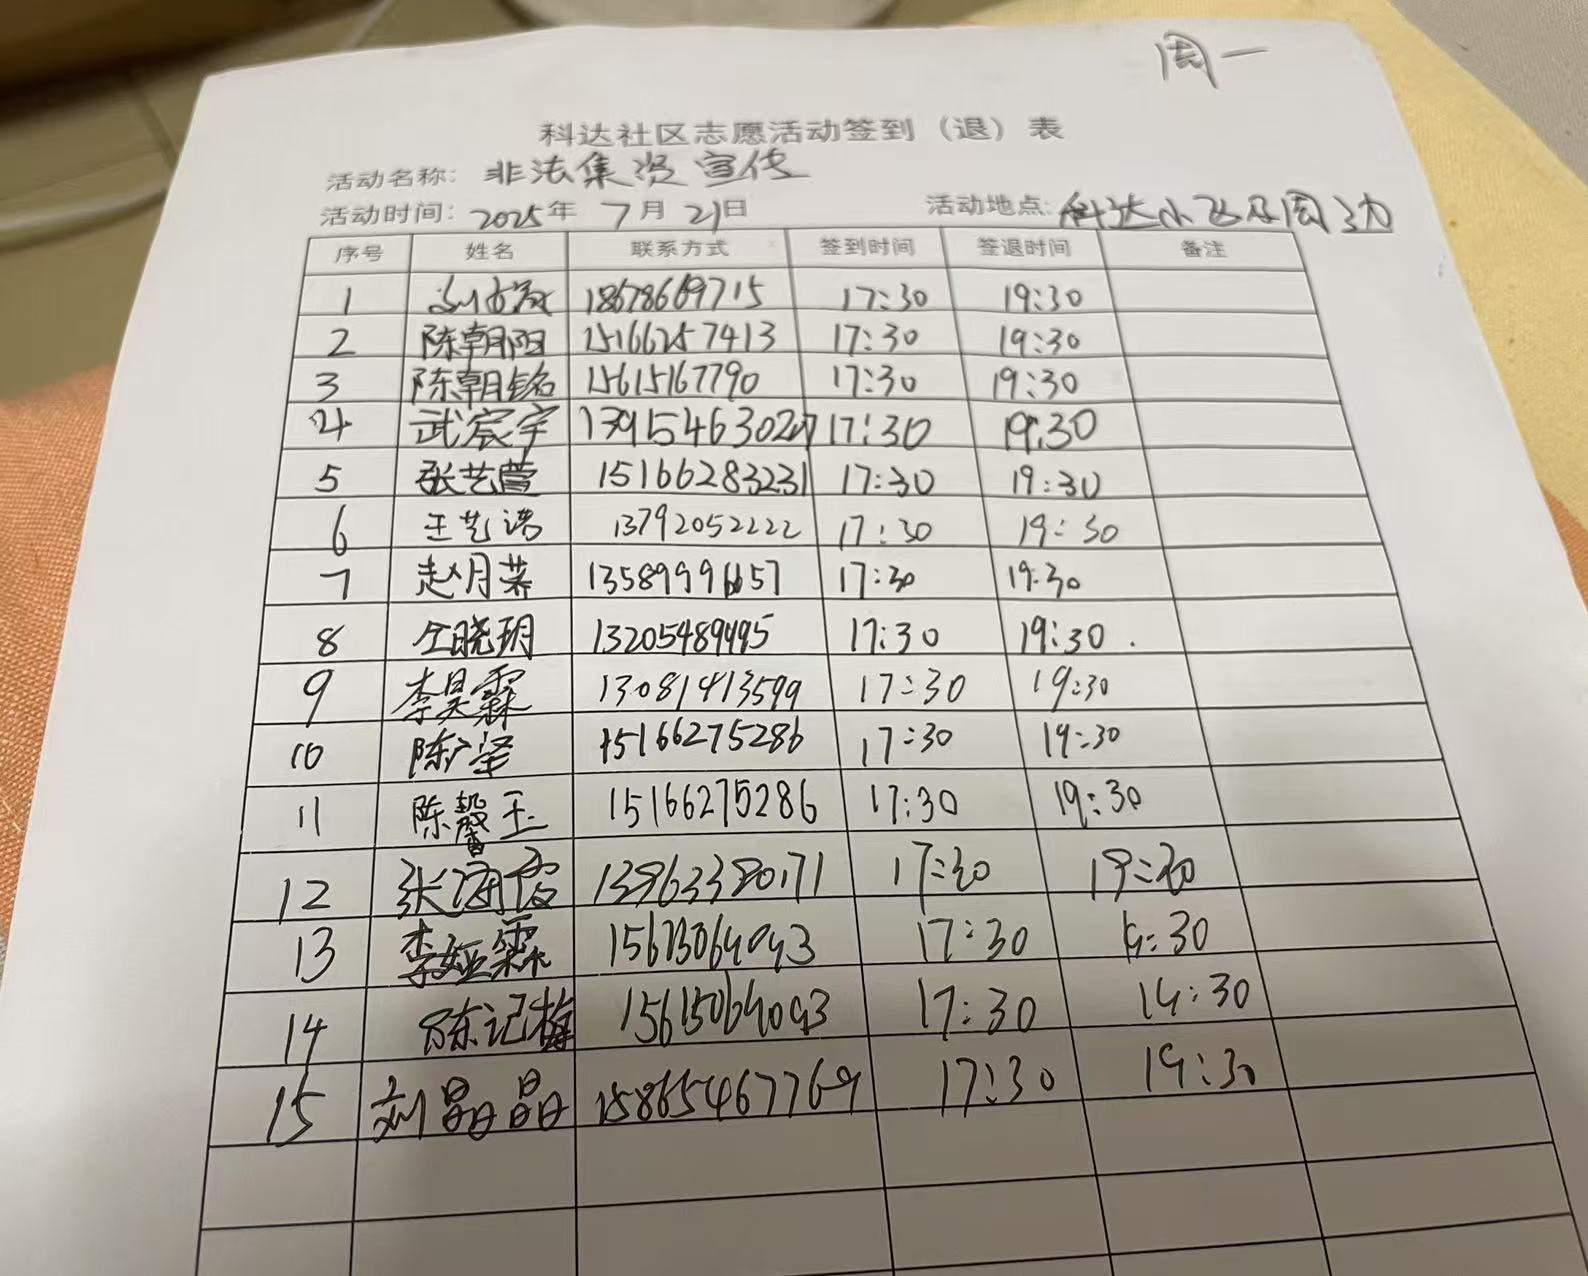 周一
科达社区志愿活动签到（退）表
活动名称：非法集资宣传
活动时间：2025年 7月 21日 活动地点：科达小区及周边
序号 姓名 联系方式 签到时间 签退时间 备注
1 18678669715 17:30 19:30
2 陈朝阳 15166257413 17:30 19:30
3 陈朝铭 15615167790 17:30 19:30
4 武宸宇 17:30 19:30
5 张艺萱 15166283231 17:30 19:30
6 王艺诺 13792052222 17:30 19:30
7 赵月 17:30 19:30
8 仝晓玥 13205489495 17:30 19:30
9 李昊霖 13081413599 17:30 19:30
10 陈 15166275286 17:30 19:30
11 陈馨玉 15166275286 17:30 19:30
12 张海霞 17:30 19:30
13 李娅霖 17:30 19:30
14 陈记梅 17:30 19:30
15 刘晶晶 15865467769 17:30 19:30